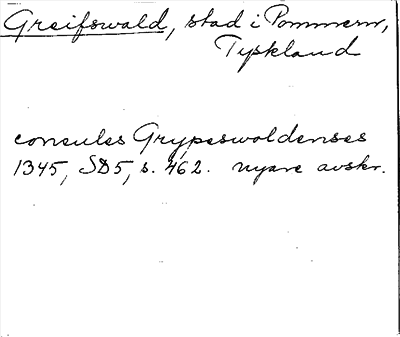 Greifswald, stad i Pommern,
Tyskland
consules Grypeswoldenses
1345, SD5, s. 462. nyare avskr.